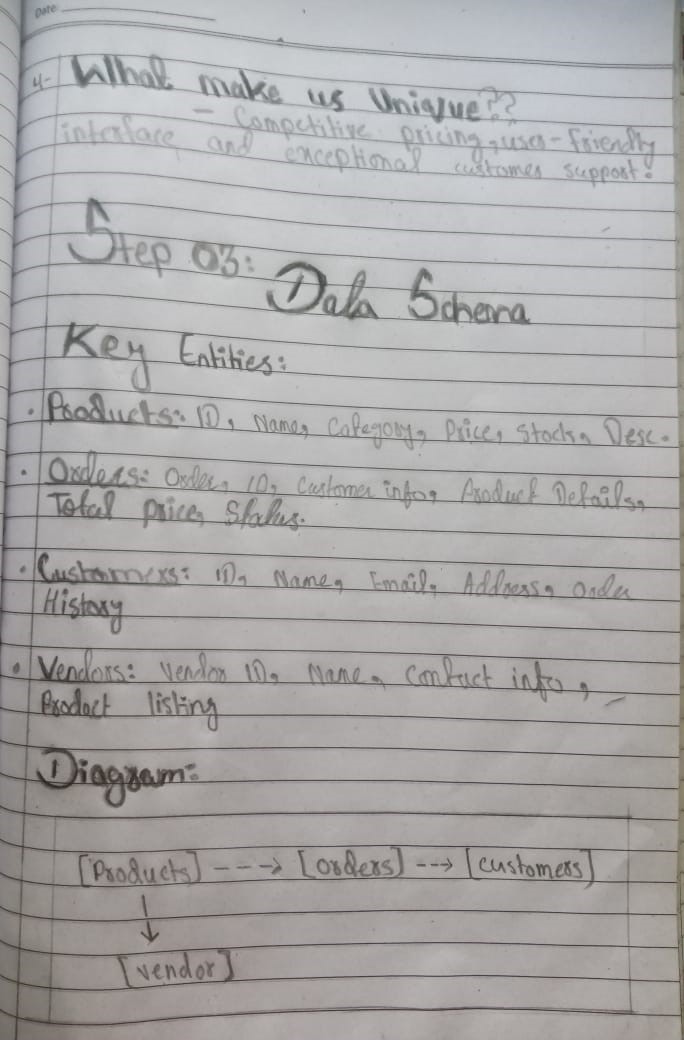 Date
4- What make us Unique??
- Competitive pricing, user-friendly
interface and exceptional customer support.
Step 03:
Data Schema
Key Entities:
• Products: ID, Name, Category, Price, Stock, Desc.
• Orders: Order, ID, Customer info, Product Details,
Total price, Status.
• Customers: ID, Name, Email, Address, Order
History
• Vendors: Vendor ID, Name, Contact info, -
Product listing
Diagram:
[Products] ---> [orders] --> [customers]
[vendor]